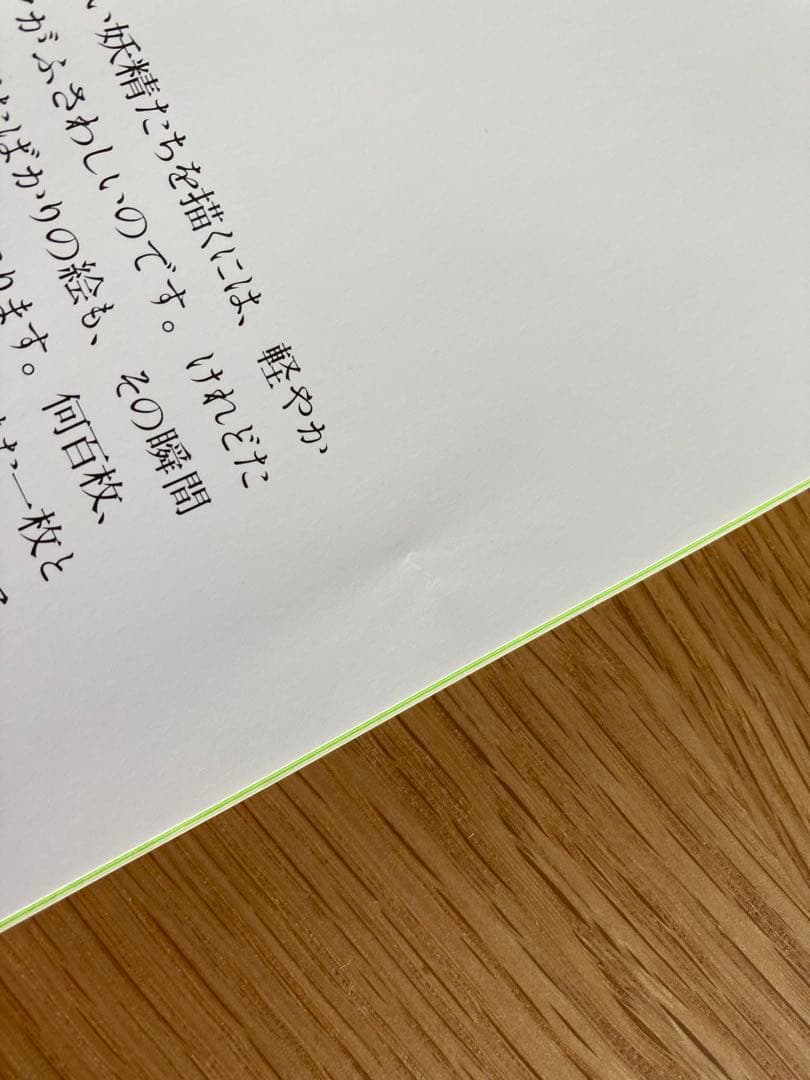 い妖精たちを描くには、軽やか
がふさわしいのです。けれどた
ばかりの絵も、その瞬間
ります。何百枚、
た一枚と